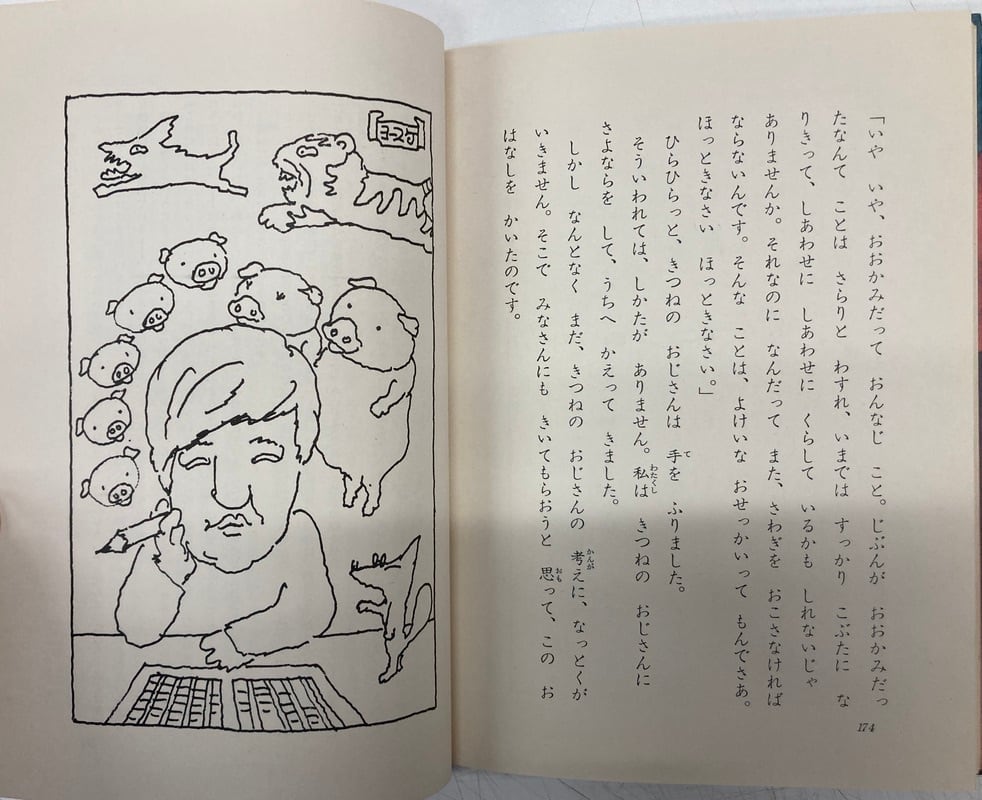 「いや いや、おおかみだって おんなじ こと。じぶんが おおかみだっ
たなんて ことは さらりと わすれ、いまでは すっかり こぶたに な
りきって、しあわせに しあわせに くらして いるかも しれないじゃ
ありませんか。それなのに なんだって また、さわぎを おこさなければ
ならないんです。そんな ことは、よけいな おせっかいって もんでさあ。
ほっときなさい ほっときなさい。」
ひらひらっと、きつねの おじさんは 手を ふりました。
そういわれては、しかたが ありません。私は きつねの おじさんに
さよならを して、うちへ かえって きました。
しかし なんとなく まだ、きつねの おじさんの 考えに、なっとくが
いきません。そこで みなさんにも きいてもらおうと 思って、この お
はなしを かいたのです。
174